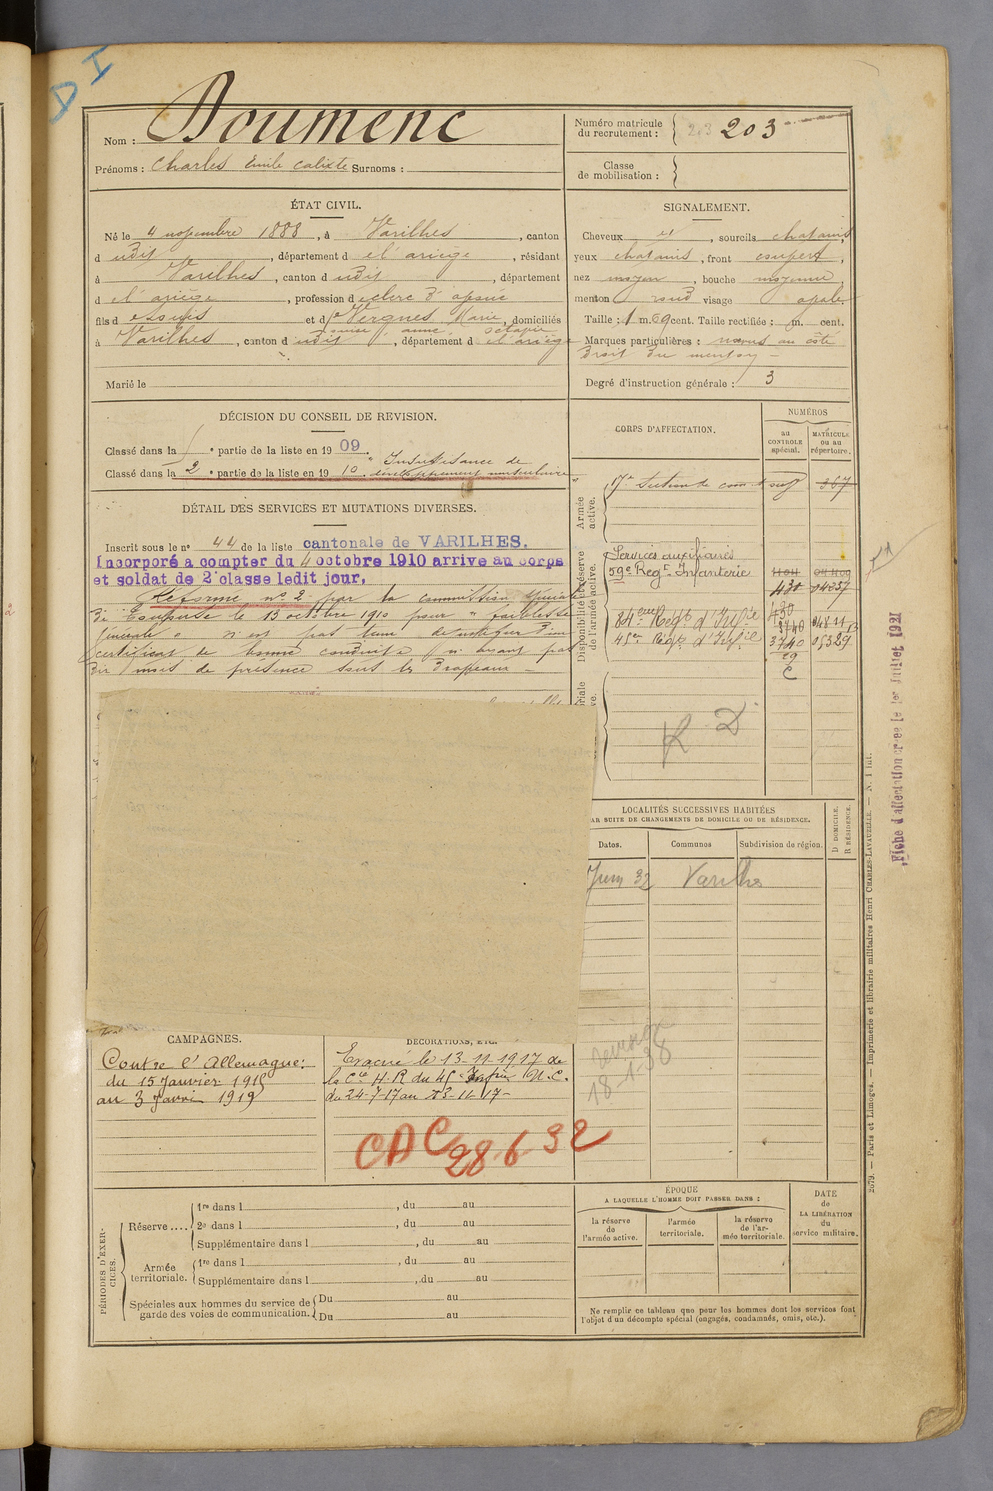 D I
Nom : Doumenc
Prénoms : Charles Emile Calixte Surnoms :
Numéro matricule
du recrutement : 203 203
Classe
de mobilisation :
ÉTAT CIVIL.
Né le 4 novembre 1888, à Varilhes, canton
d udit, département d e l'ariège, résidant
à Varilhes, canton d udit, département
d e l'ariège, profession d e clerc d'
fils d e et d e Vergnes Marie, domiciliés
anne octavie
à Varilhes, canton d udit, département d e l'ariège
Marié le
SIGNALEMENT.
Cheveux et, sourcils chatains,
yeux chatains, front couvert,
nez moyen, bouche moyenne
menton rond visage ovale
Taille : 1 m. 69 cent. Taille rectifiée : m. cent.
Marques particulières : nævus au côté
droit du menton
Degré d'instruction générale : 3
DÉCISION DU CONSEIL DE REVISION.
Classé dans la / e partie de la liste en 1909
Classé dans la 2 e partie de la liste en 1910 "Insuffisance de
développement musculaire"
DÉTAIL DES SERVICES ET MUTATIONS DIVERSES.
Inscrit sous le no 44 de la liste cantonale de VARILHES.
Incorporé à compter du 4 octobre 1910 arrivé au corps
et soldat de 2e classe ledit jour.
Réformé no 2 par la commission spéciale
de Toulouse le 15 octobre 1910 pour "faiblesse
générale" n'est pas tenu de justifier d'un
certificat de bonne conduite n'ayant pas
six mois de présence sous les drapeaux
CORPS D'AFFECTATION.
NUMÉROS
au
CONTROLE
spécial.
MATRICULE
ou au
répertoire.
Armée
active.
17e Section de 367
Disponibilité et réserve
de l'armée active.
Services auxiliaires
59e Regt Infanterie
430 04257
84eme Regt d'Infie 3740
45e Regt d'Infie 3740 05329
R. D
LOCALITÉS SUCCESSIVES HABITÉES
PAR SUITE DE CHANGEMENTS DE DOMICILE OU DE RÉSIDENCE.
Dates. Communes Subdivision de région. D DOMICILE. R RÉSIDENCE.
Juin 32 Varilhes
18-1-38
CAMPAGNES.
Contre l'Allemagne :
du 15 Janvier 1915
au 3 1919
DÉCORATIONS, ETC.
Evacué le 13-11-1917 de
la Cie H.R du 45e Infie N.C.
du 24-7-17 au 13-11-17-
CAC 28-6-32
PÉRIODES D'EXERCICES.
Réserve .... 1re dans l, du au
2e dans l, du au
Supplémentaire dans l, du au
Armée
territoriale. 1re dans l, du au
Supplémentaire dans l, du au
Spéciales aux hommes du service de
garde des voies de communication. Du au
Du au
ÉPOQUE
A LAQUELLE L'HOMME DOIT PASSER DANS :
la réserve
de
l'armée active.
l'armée
territoriale.
la réserve
de l'ar-
mée territoriale.
DATE
de
LA LIBÉRATION
du
service militaire.
Ne remplir ce tableau que pour les hommes dont les services font
l'objet d'un décompte spécial (engagés, condamnés, omis, etc.).
Fiche d'affectation créée le 1er Juillet 1921
2679. — Paris et Limoges. — Imprimerie et librairie militaires Henri CHARLES-LAVAUZELLE. — N. 1 int.